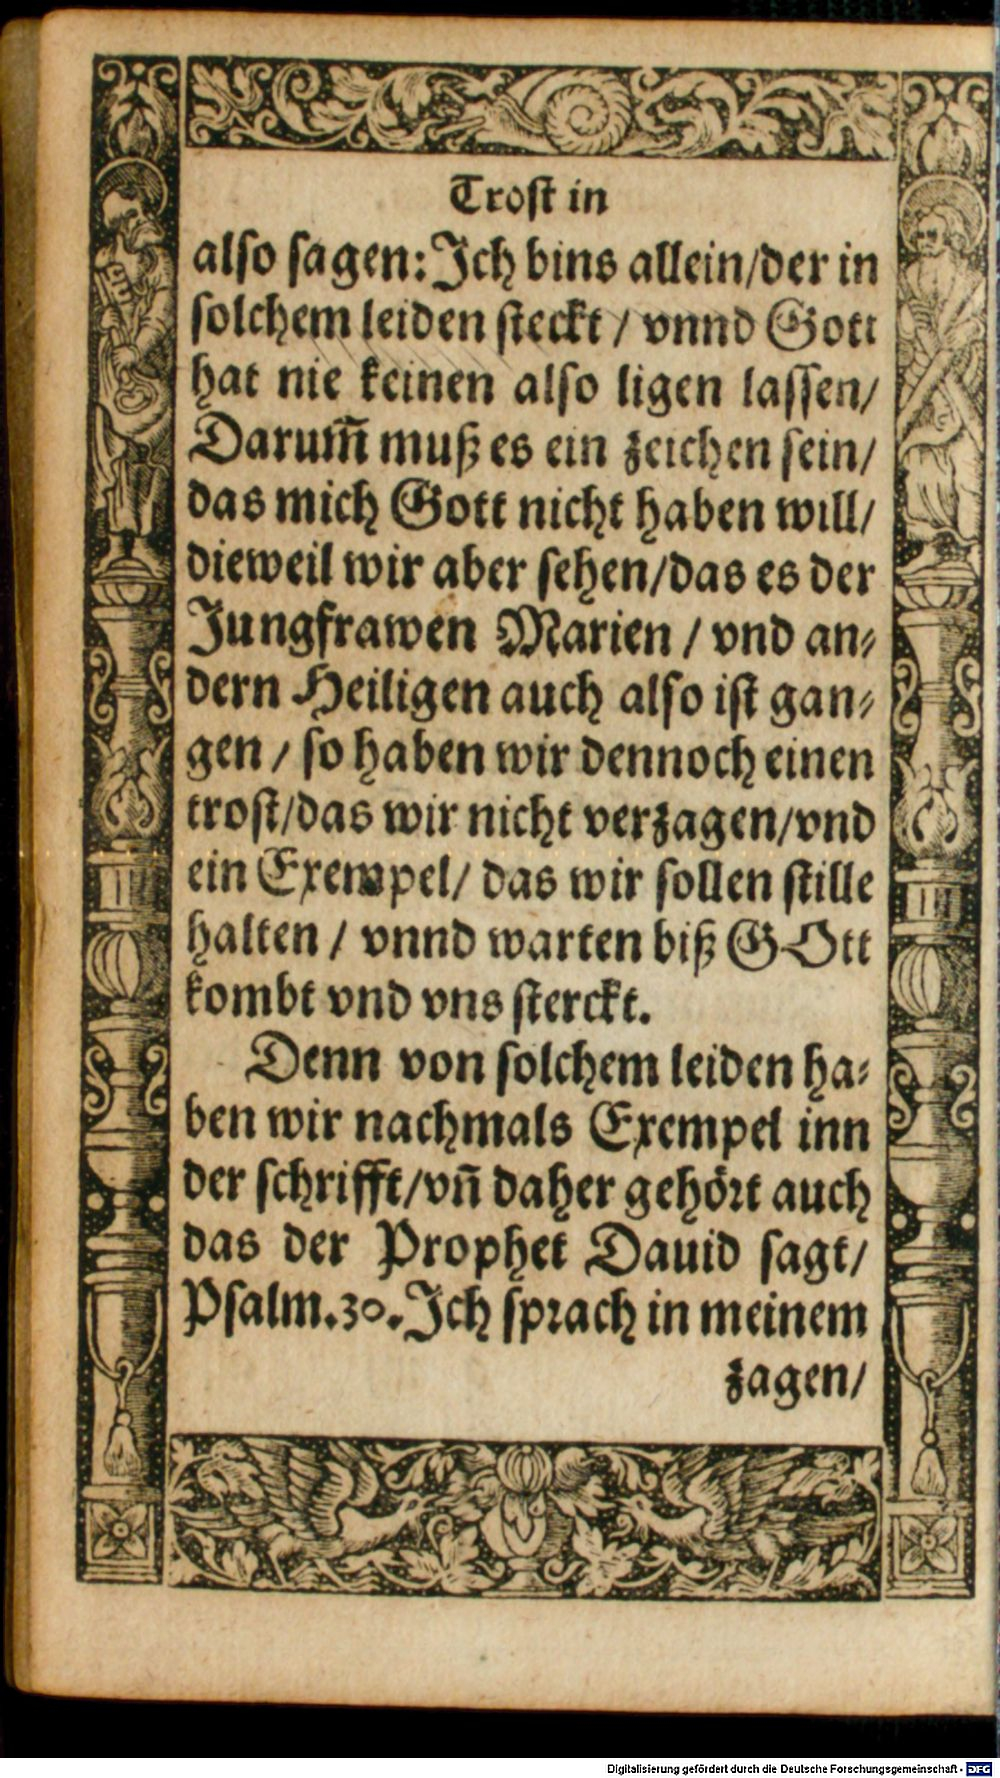 Trost in
also sagen: Ich bins allein/der in
solchem leiden steckt / vnnd Gott
hat nie keinen also ligen lassen/
Darum̃ muß es ein zeichen sein/
das mich Gott nicht haben will/
dieweil wir aber sehen/das es der
Jungfrawen Marien / vnd an⸗
dern Heiligen auch also ist gan⸗
gen / so haben wir dennoch einen
trost/das wir nicht verzagen/vnd
ein Exempel/ das wir sollen stille
halten / vnnd warten biß GOtt
kombt vnd vns sterckt.
Denn von solchem leiden ha⸗
ben wir nachmals Exempel inn
der schrifft/vn̄ daher gehört auch
das der Prophet Dauid sagt/
Psalm.30. Ich sprach in meinem
zagen/
Digitalisierung gefördert durch die Deutsche Forschungsgemeinschaft - DFG